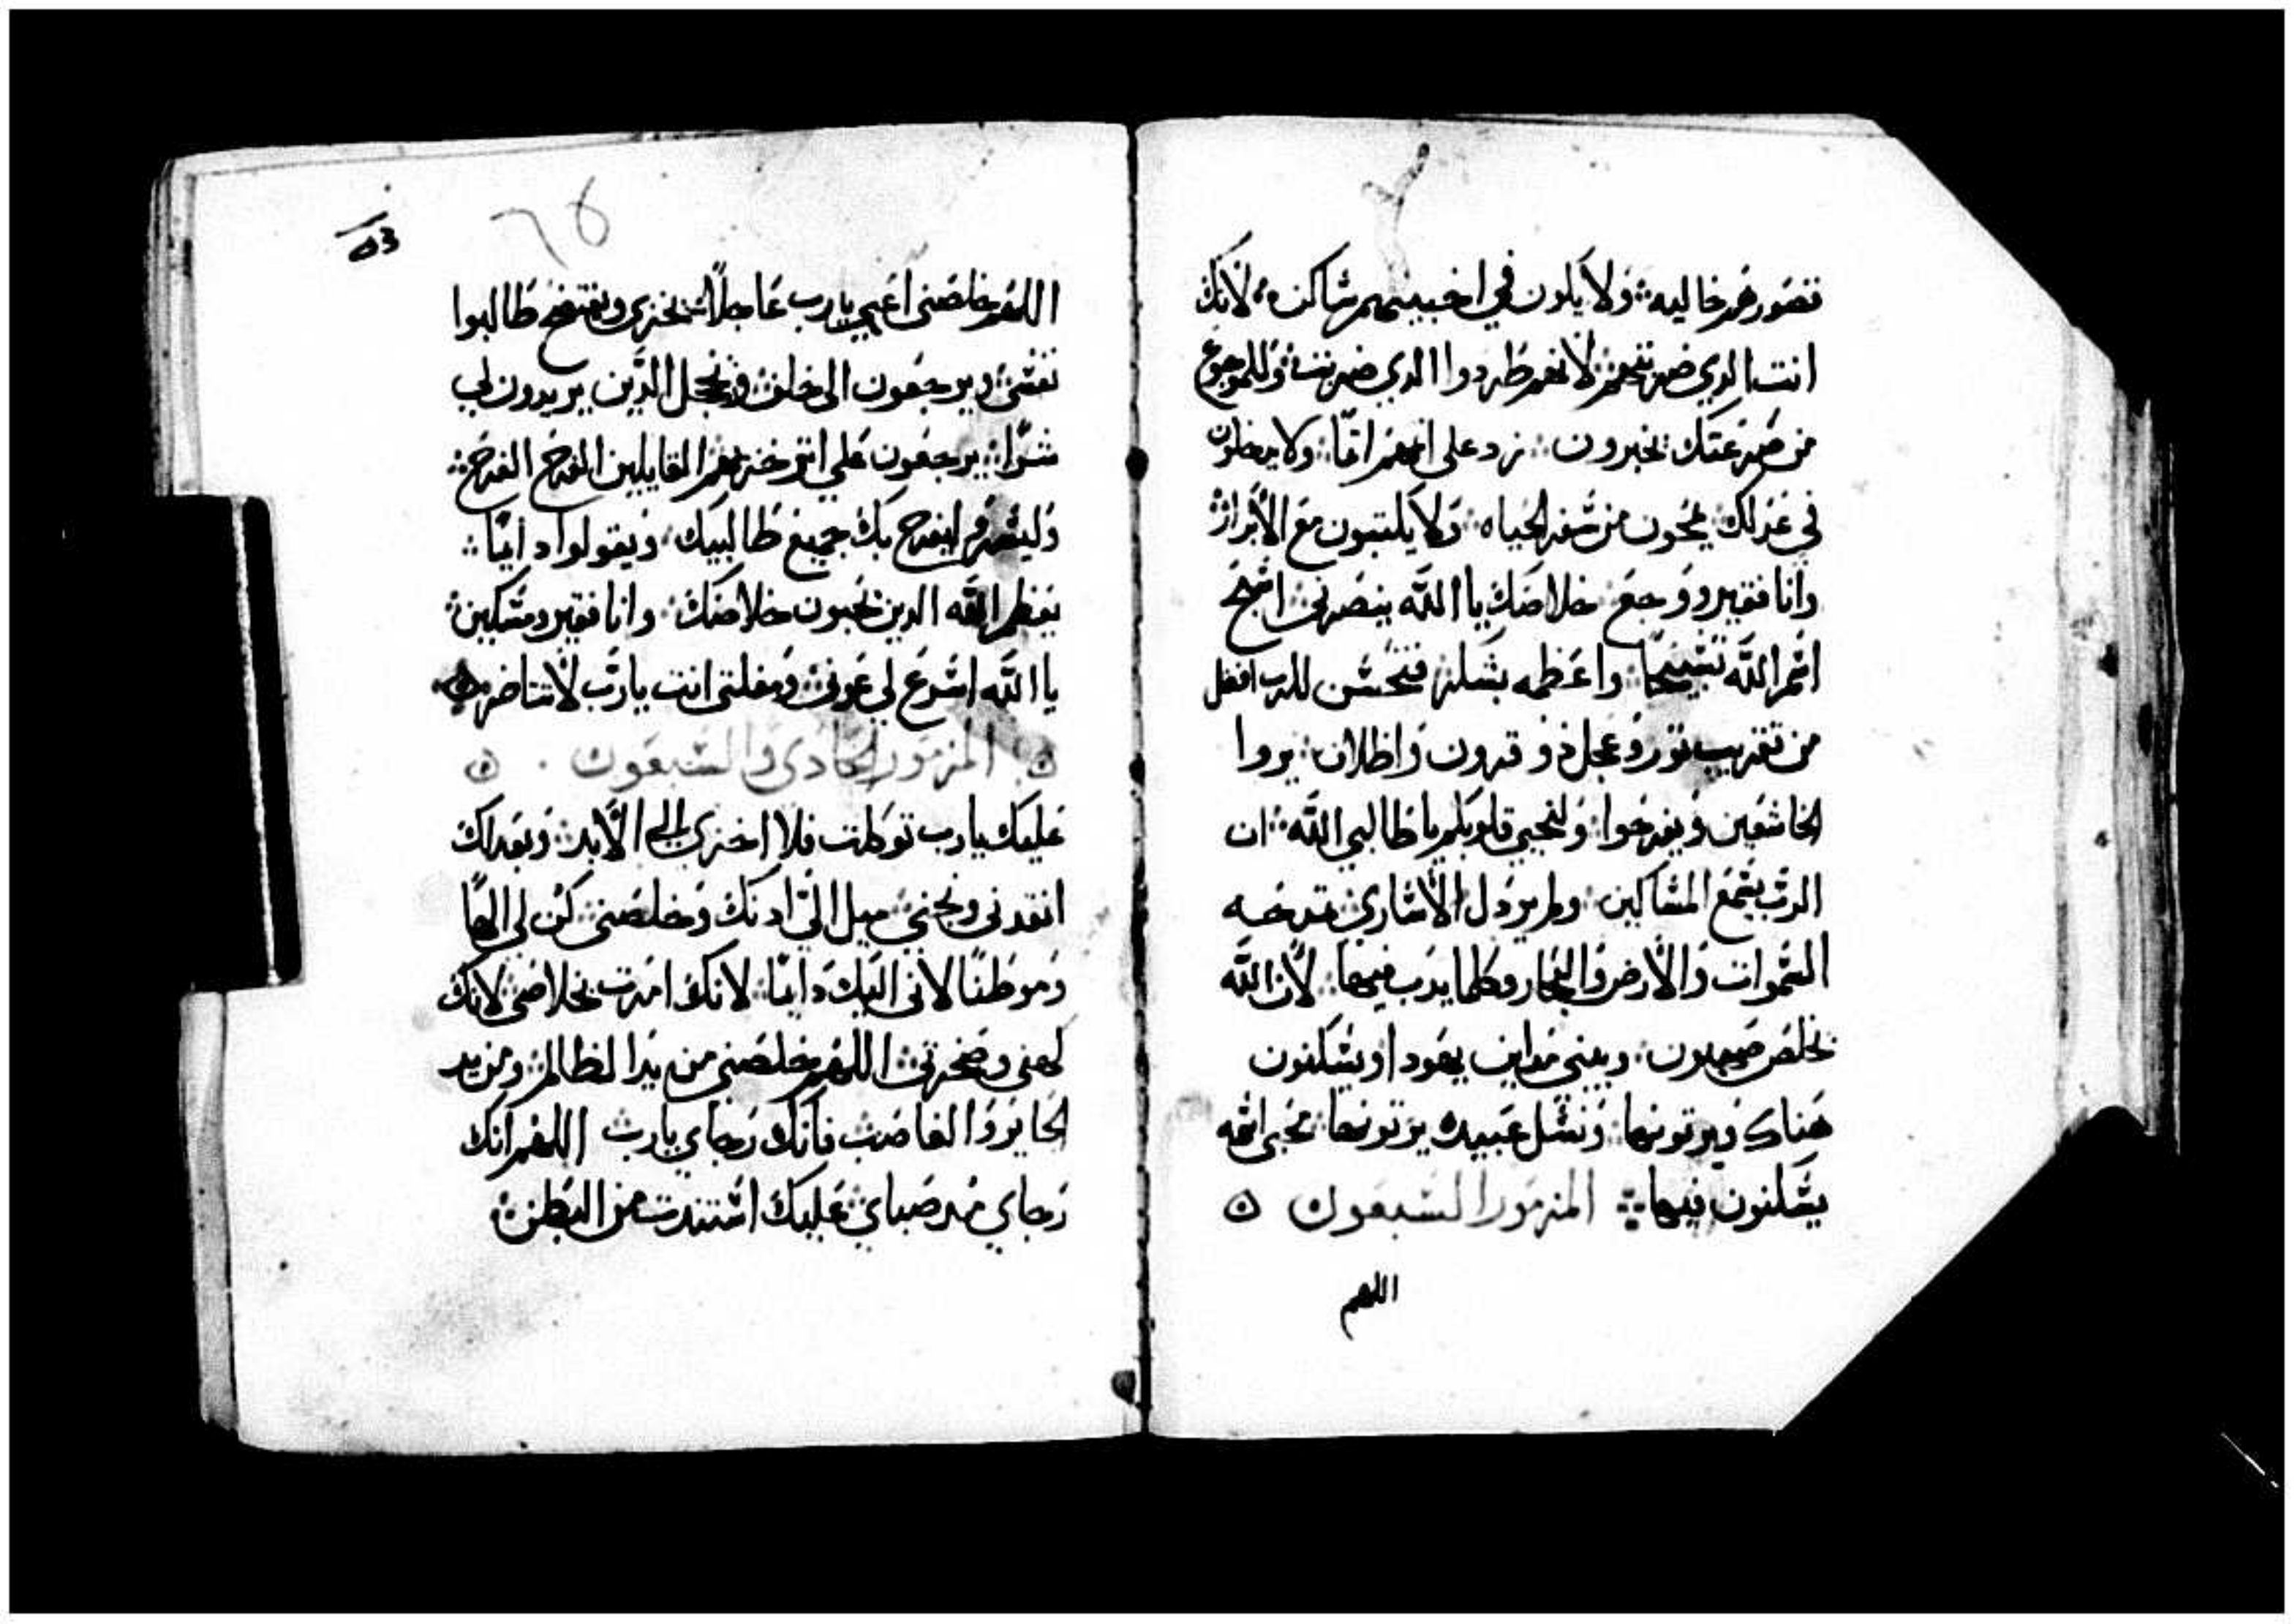 فتصور هم خاليه ولا يكون في اخبيتهم ساكن لانك
انت الدي ضربتهم لانهم طردوا الدي ضربت وللموجوع
من ضرعتك يخبرون زد على اتمهم اتما ولا يدخلون
في عدلك يمحون من سفر الحياه ولا يكتبون مع الابرار
وانا فقير ووجع خلاصك يا الله ينصرني اسبح
اسم الله تسبيحا واعظمه بشكر فتحسن للرب افضل
من تقريب تور وعجل دو قرون واظلاف يروا
الخاشعين ويفرحوا ولتحيي قلوبكم يا طالبي الله ان
الرب يسمع المساكين ولم يردل الاساري تمدحه
السموات والارض والبحار وكلما يدب فيها لان الله
يخلص صهيون ويبني مداين يهودا ويسكنون
هناك ويرتونها ونسل عبيدك يرتونها محبي اسمه
يسكنون فيها المزمور السبعون
اللهم
٥٣
اللهم خلصني اعجب يارب عاجلا يخزي ويفتضح طالبوا
نفسي ويرجعون الى خلف ويخجل الدين يريدون لي
شرا يرجعون على اتر خزيهم القايلين الفرح الفرح
وليسر وليفرح بك جميع طالبيك ويقولوا دايما
يعظم الله الدين يحبون خلاصك وانا فقير ومسكين
يا الله اسرع لي عوني ومفلتي انت يارب لا تتاخر
المزمور الحادي والسبعون
عليك يارب توكلت فلا اخزى الى الابد وبعدلك
انقدني ونجني ميل الي ادنك وخلصني كن لي الها
وموطنا لاتي اليك دايما لانك امرت بخلاصي لانك
كهفي وصخرتي اللهم خلصني من يد الظالم ومن يد
الجاير والغاصب فانك رجاي يارب اللهم انك
رجاي مند صباي عليك استندت من البطن